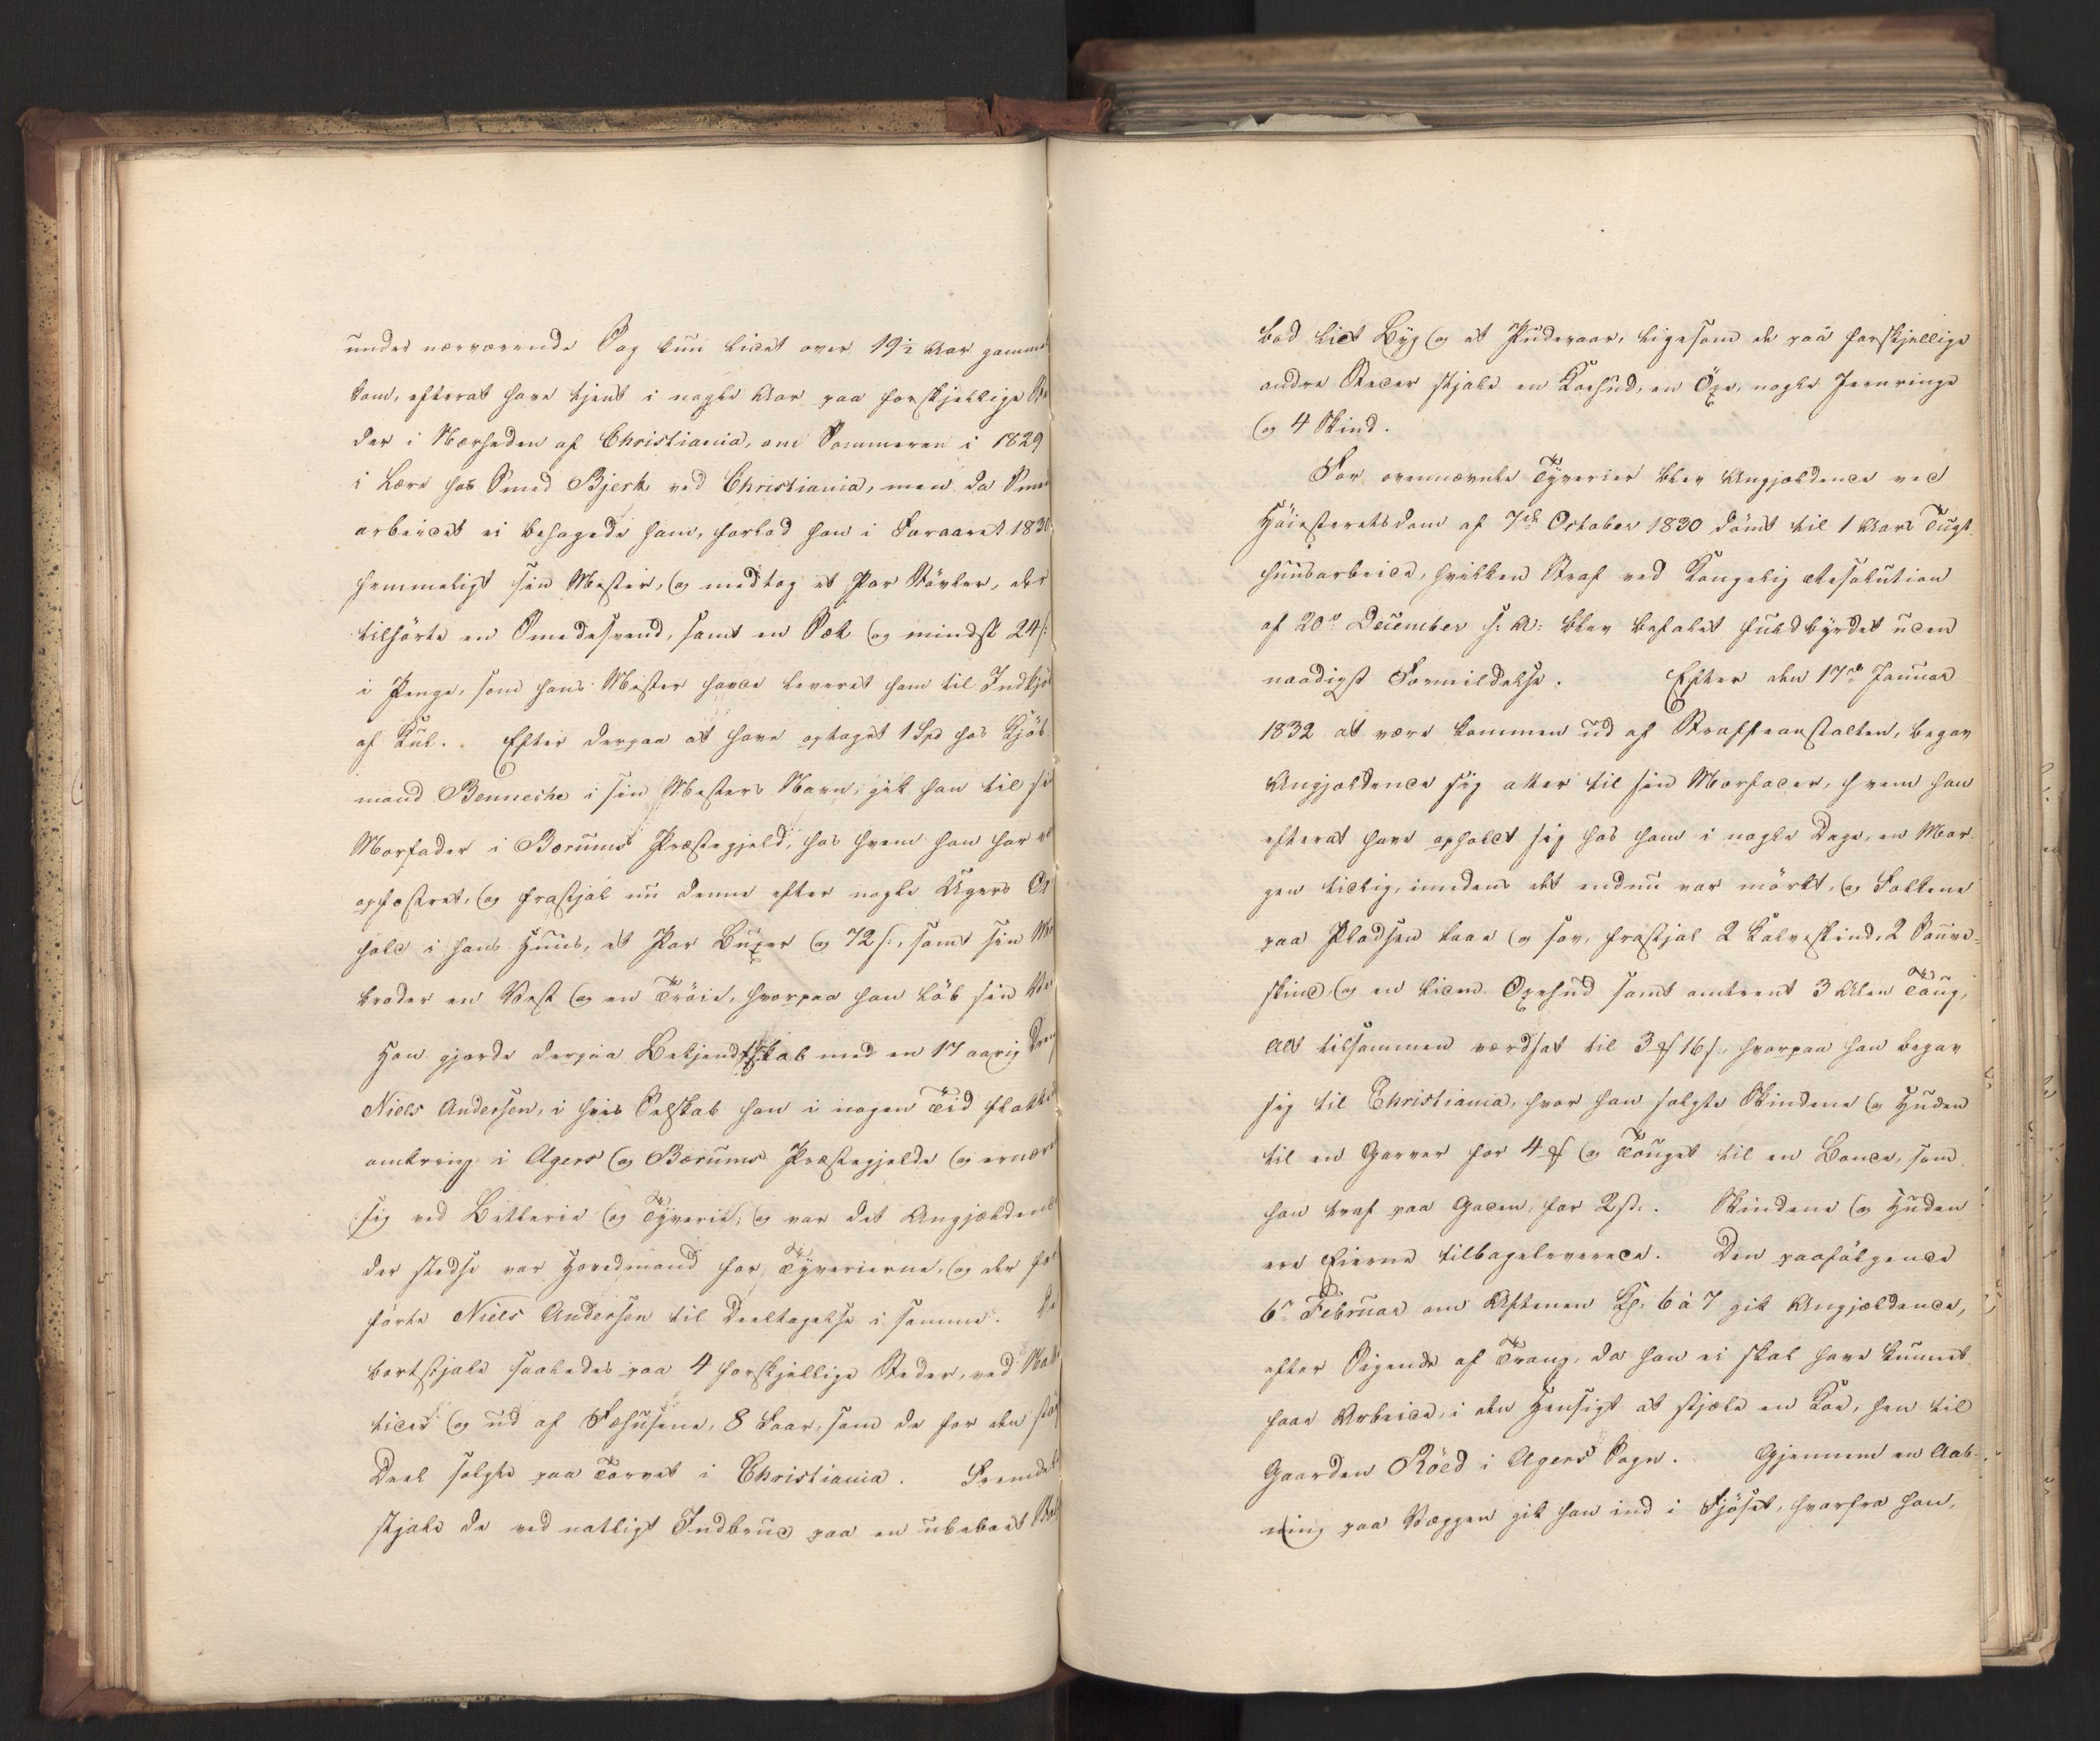 under nærværende Sag kun lidet over 19½ Aar gamme
kom, efterat have tjent i nogle Aar paa forskjellige Ste
der i Nærheden af Christiania, om Sommeren i 1829
i Lære hos Smed Bjerk ved Christiania, men da Sme
arbeidet ei behagede ham, forlod han i Foraaret 1830
hemmeligt sin Mester, og medtog et Par Støvler, der
tilhørte en Smedesvend, samt en Sæk og mindst 24 s:
i Penge, som hans Mester havde leveret ham til Indkjø
af Kul. Efter derpaa at have optaget 1 Spd hos Kjøb
mand Benneche i sin Mesters Navn, gik han til si
Morfader i Bærums Præstegjeld, hos hvem han har v
opfostret, og frastjal nu denne efter nogle Ugers Op
hold i hans Huus, et Par Buxer og 72 s:, samt sin Mo
broder en Vest og en Trøie, hvorpaa han løb sin Vei
Han gjorde derpaa Bekjendtskab med en 17 aarig Dreng
Niels Andersen, i hvis Selskab han i nogen Tid flakke
omkring i Agers og Bærums Præstegjelde og ernære
sig ved Betlerie og Tyverie, og var det Angjældende
der stedse var Hovedmand for Tyverierne, og der for
førte Niels Andersen til Deeltagelse i samme. De
bortstjale saaledes paa 4 forskjellige Steder, ved Natte
tider og ud af Fæhusene, 8 Faar, som de for den stør
Deel solgte paa Torvet i Christiania. Fremdele
stjale de ved natligt Indbrud paa en ubeboet Sta
bod lidt Byg og et Pudevaar, ligesom de paa forskjellige
andre Steder stjale en Koehud, en Øxe, nogle Jernringe
og 4 Skind.
For ovennævnte Tyverier blev Angjældende ved
Høiesteretsdom af 7de October 1830 dømt til 1 Aars Tugt
huusarbeide, hvilken Straf ved Kongelig Resolution
af 20de December s: A: blev befalet fuldbyrdet uden
naadigst Formildelse. Efter den 17de Januar
1832 at være kommen ud af Straffeanstalten, begav
Angjældende sig atter til sin Morfader, hvem han
efterat have opholdt sig hos ham i nogle Dage, en Mor
gen tidlig, imedens det endnu var mørkt, og Folkene
paa Pladsen laae og sov, frastjal 2 Kalveskind, 2 Saue-
skind, og en liden Oxehud samt omtrent 3 Alen Toug,
Alt tilsammen værdsat til 3 ₰ 16 s:, hvorpaa han begav
sig til Christiania, hvor han solgte Skindene og Huden
til en Garver for 4 ₰ og Touget til en Bonde, som
han traf paa Gaden, for 2 s:. Skindene og Huden
ere Eierne tilbageleverede. Den paafølgende
6te Februar om Aftenen Kl: 6 à 7 gik Angjældende,
efter Sigende af Trang, da han ei skal have kunnet
faae Arbeide, i den Hensigt at stjæle en Koe, hen til
Gaarden Röed i Agers Sogn. Gjennem en Aab-
ning paa Væggen gik han ind i Fjøset, hvorfra han,